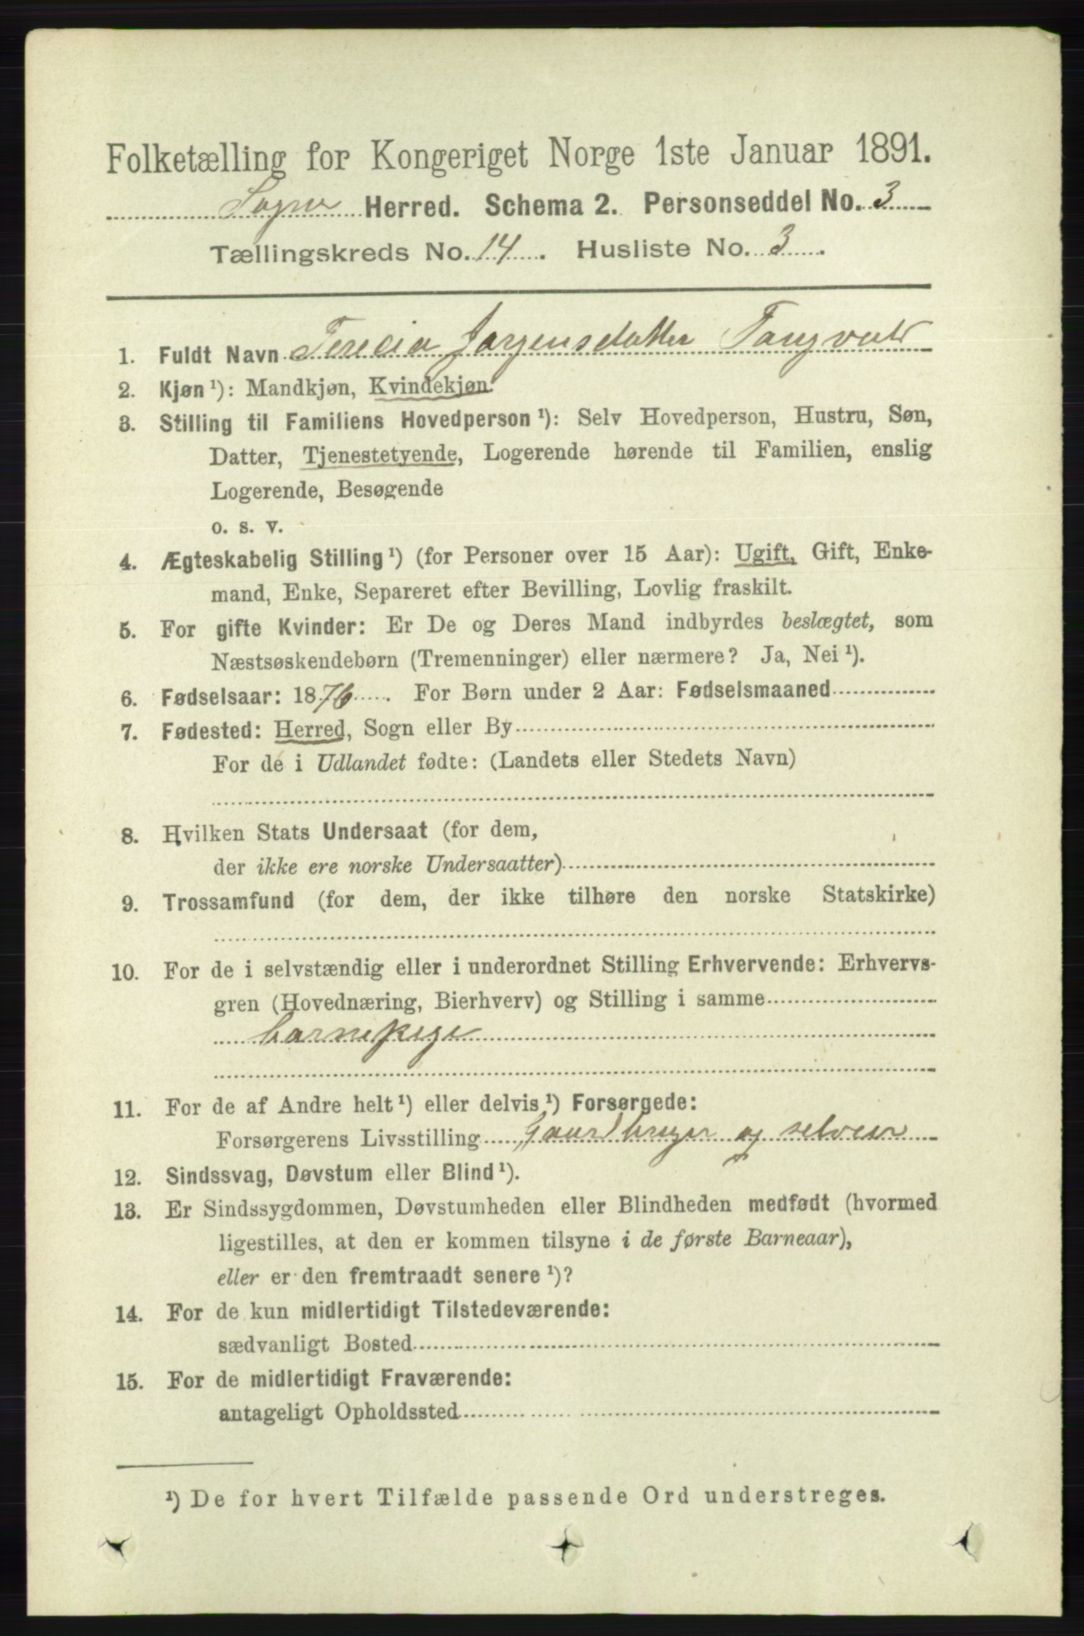 Folketælling for Kongeriget Norge 1ste Januar 1891.
Søgne Herred. Schema 2. Personseddel No. 3
Tællingskreds No. 14. Husliste No. 3.
1. Fuldt Navn Terecia Jørgensdatter Tangvald
2. Kjøn ¹): Mandkjøn, Kvindekjøn.
3. Stilling til Familiens Hovedperson ¹): Selv Hovedperson, Hustru, Søn,
Datter, Tjenestetyende, Logerende hørende til Familien, enslig
Logerende, Besøgende
o. s. v.
4. Ægteskabelig Stilling ¹) (for Personer over 15 Aar): Ugift, Gift, Enke-
mand, Enke, Separeret efter Bevilling, Lovlig fraskilt.
5. For gifte Kvinder: Er De og Deres Mand indbyrdes beslægtet, som
Næstsøskendebørn (Tremenninger) eller nærmere? Ja, Nei ¹).
6. Fødselsaar: 1876. For Børn under 2 Aar: Fødselsmaaned
7. Fødested: Herred, Sogn eller By
For de i Udlandet fødte: (Landets eller Stedets Navn)
8. Hvilken Stats Undersaat (for dem,
der ikke ere norske Undersaatter)
9. Trossamfund (for dem, der ikke tilhøre den norske Statskirke)
10. For de i selvstændig eller i underordnet Stilling Erhvervende: Erhvervs-
gren (Hovednæring, Bierhverv) og Stilling i samme
barnepige
11. For de af Andre helt ¹) eller delvis ¹) Forsørgede:
Forsørgerens Livsstilling Gaardbruger og selveier
12. Sindssvag, Døvstum eller Blind ¹).
13. Er Sindssygdommen, Døvstumheden eller Blindheden medfødt (hvormed
ligestilles, at den er kommen tilsyne i de første Barneaar),
eller er den fremtraadt senere ¹)?
14. For de kun midlertidigt Tilstedeværende:
sædvanligt Bosted
15. For de midlertidigt Fraværende:
antageligt Opholdssted
¹) De for hvert Tilfælde passende Ord understreges.